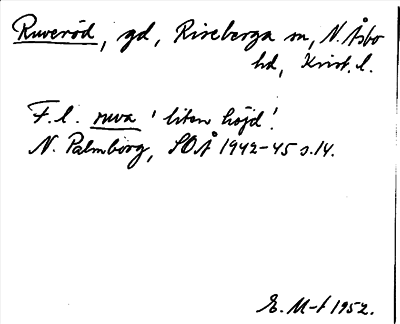 Ruveröd, gd, Riseberga sn, N. Åsbo
hd, Krist. l.
F.l. ruva 'liten höjd'.
N. Palmborg, SOÅ 1942-45 s.14.
E. M-t 1952.